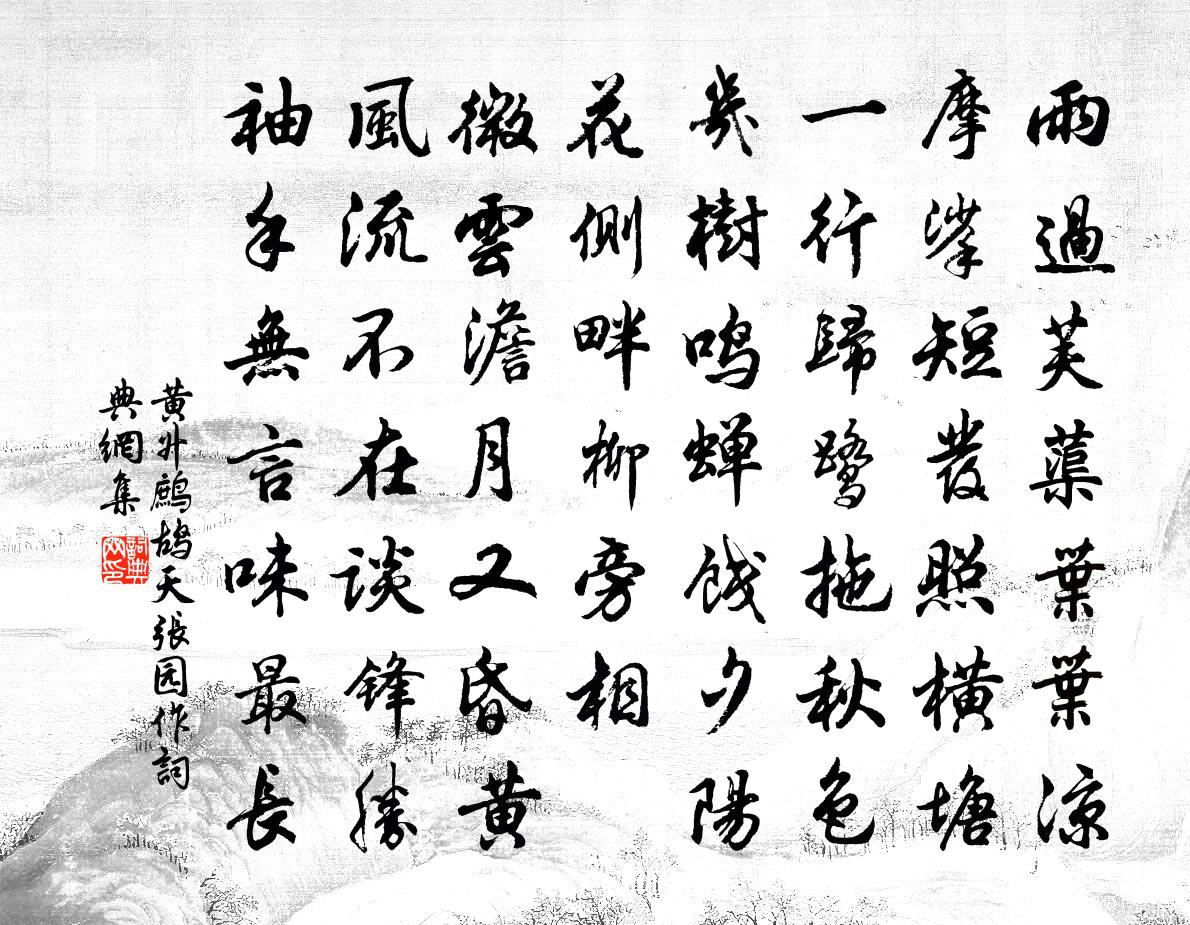 雨過芙蕖葉葉涼
摩挲短發照橫塘
一行歸鷺拖秋色
幾樹鳴蟬餞夕陽
花側畔柳旁相
微雲澹月又昏黃
風流不在談鋒勝
袖手無言味最長
黃升鷓鴣天張园作詞
典網集
詞典
网印